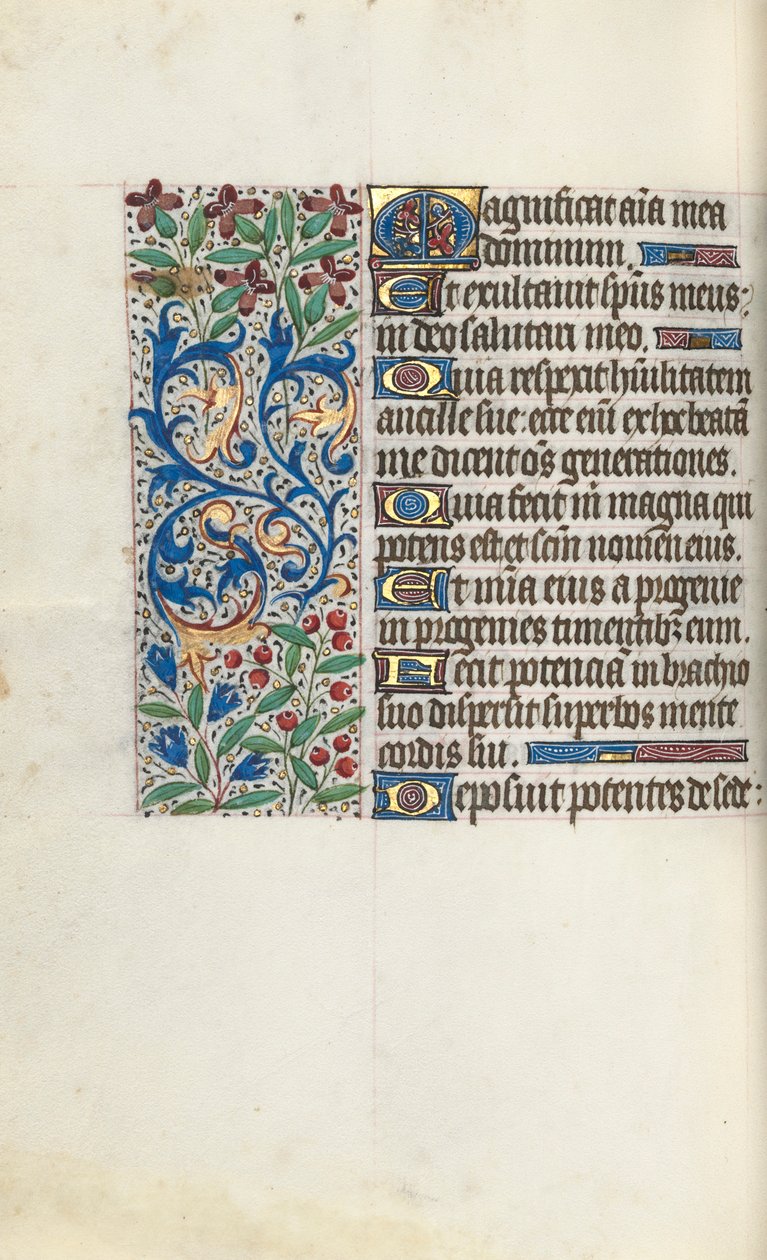 Magnificat aīa mea
dominum.
Et exultauit spūs meus:
in deo salutari meo.
Quia respexit hūilitatem
ancille sue: ecce enī ex hoc beatā
me dicent oēs generationes.
Quia fecit m̄ magna qui
potens est et scm̄ nomen eius.
Et mīa eius a progenie
in progenies timentibꝫ eum.
Fecit potenciā in brachio
suo dispersit superbos mente
cordis sui.
Deposuit potentes de sede: